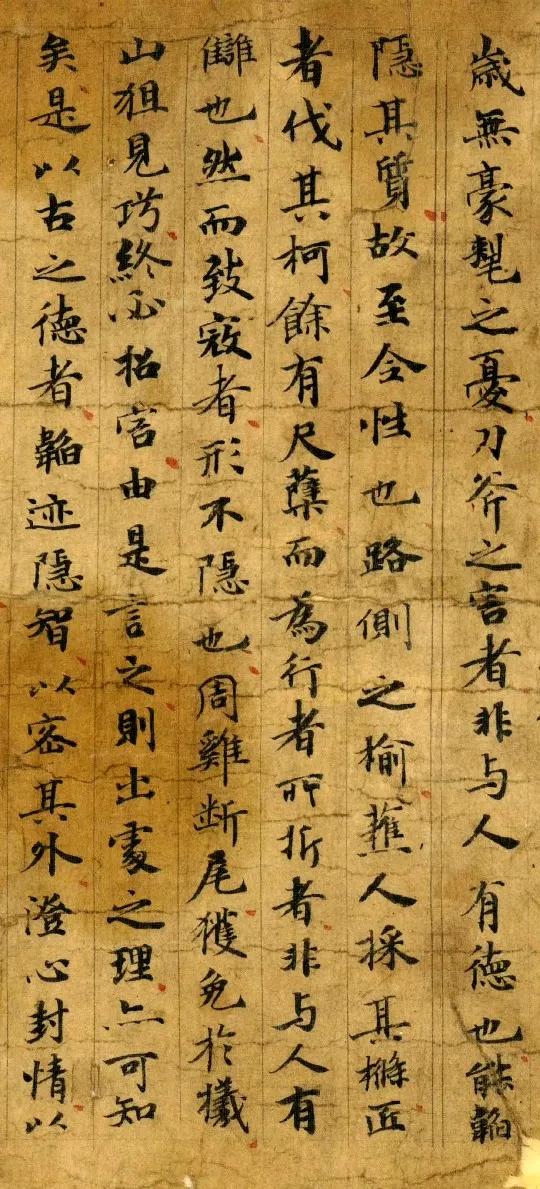 歳無豪氂之憂刀斧之害者非与人有德也能韜
隱其質故至全性也路側之榆蕉人採其條匠
者伐其柯餘有尺蘖而為行者所折者非与人有
讎也然而致寇者形不隱也周雞断尾獲免於犧
山狙見巧終必招害由是言之則出處之理亦可知
矣是以古之德者韜迹隱智以密其外澄心封情以